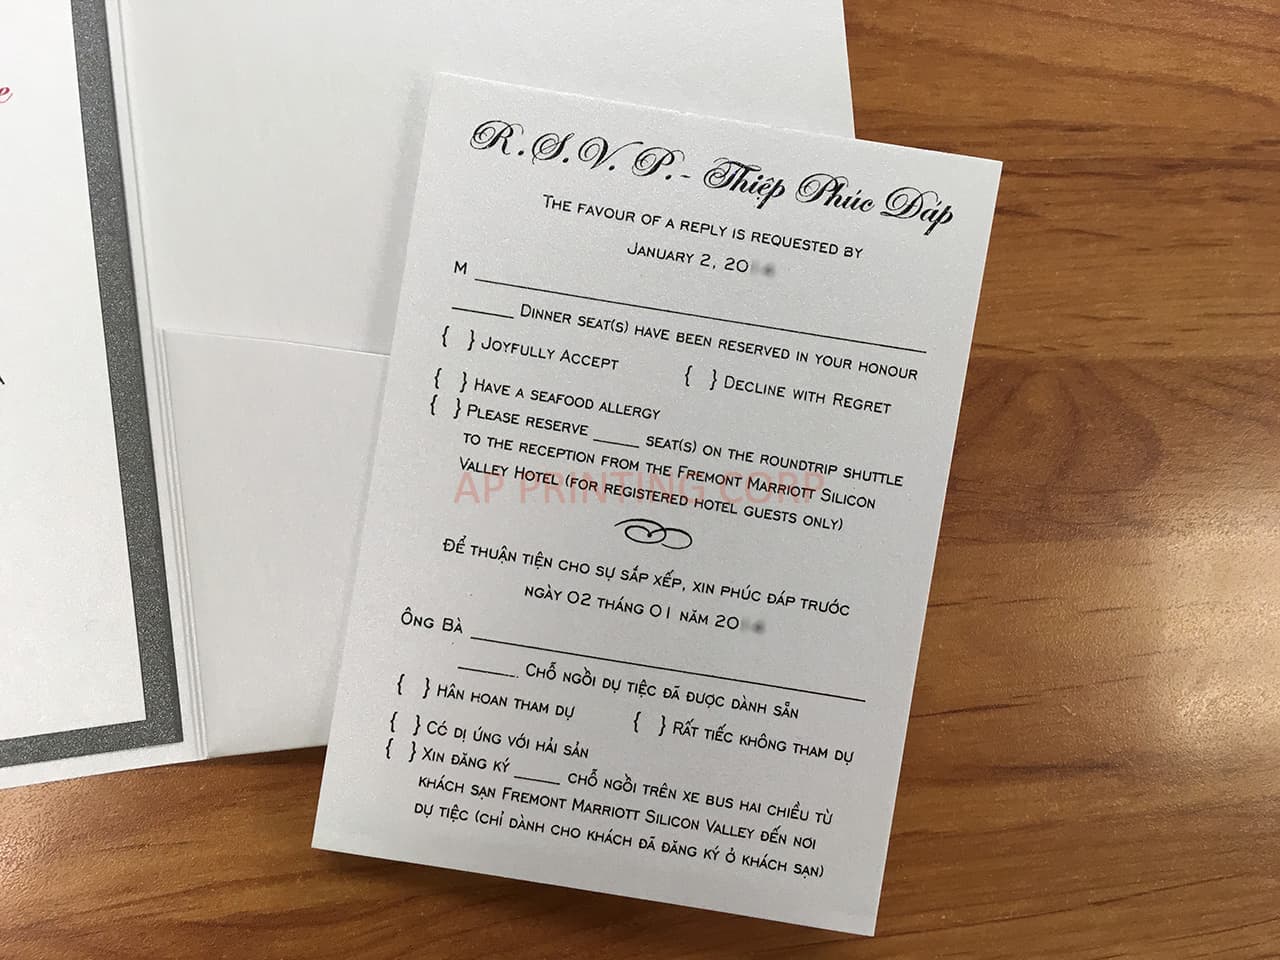 R.S.V.P.- Thiệp Phúc Đáp
The favour of a reply is requested by
January 2, 20
M ____________________
______ Dinner seat(s) have been reserved in your honour
{ } Joyfully Accept { } Decline with Regret
{ } Have a seafood allergy
{ } Please reserve _____ seat(s) on the roundtrip shuttle
to the reception from the Fremont Marriott Silicon
Valley Hotel (for registered hotel guests only)
AP PRINTING CORP
Để thuận tiện cho sự sắp xếp, xin phúc đáp trước
ngày 02 tháng 01 năm 20
Ông Bà ____________________
______ Chỗ ngồi dự tiệc đã được dành sẵn
{ } Hân hoan tham dự { } Rất tiếc không tham dự
{ } Có dị ứng với hải sản
{ } Xin đăng ký _____ chỗ ngồi trên xe bus hai chiều từ
khách sạn Fremont Marriott Silicon Valley đến nơi
dự tiệc (chỉ dành cho khách đã đăng ký ở khách sạn)